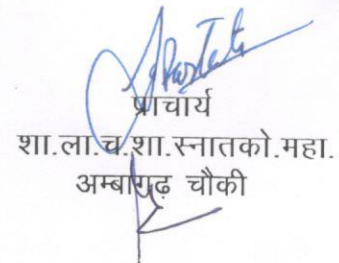 प्राचार्य
शा.ला.च.शा.स्नातको.महा.
अम्बागढ़ चौकी